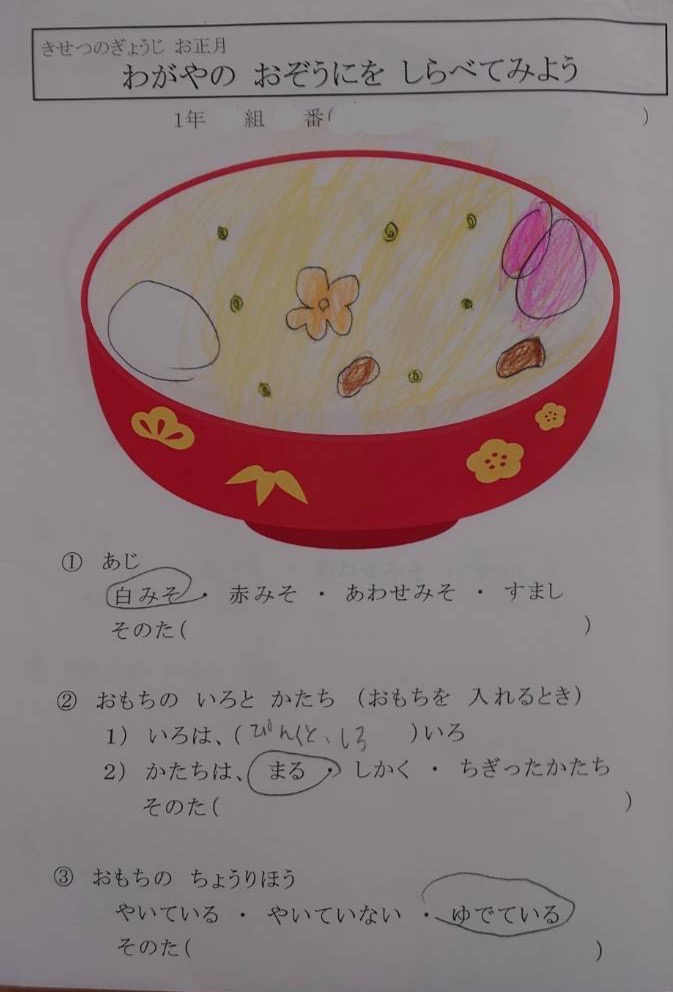 きせつのぎょうじ お正月
わがやの おぞうにを しらべてみよう
1年 組 番( )
① あじ
白みそ ・ 赤みそ ・ あわせみそ ・ すまし
そのた( )
② おもちの いろと かたち (おもちを 入れるとき)
1) いろは、(ぴんくと、しろ )いろ
2) かたちは、 まる ・ しかく ・ ちぎったかたち
そのた( )
③ おもちの ちょうりほう
やいている ・ やいていない ・ ゆでている
そのた( )